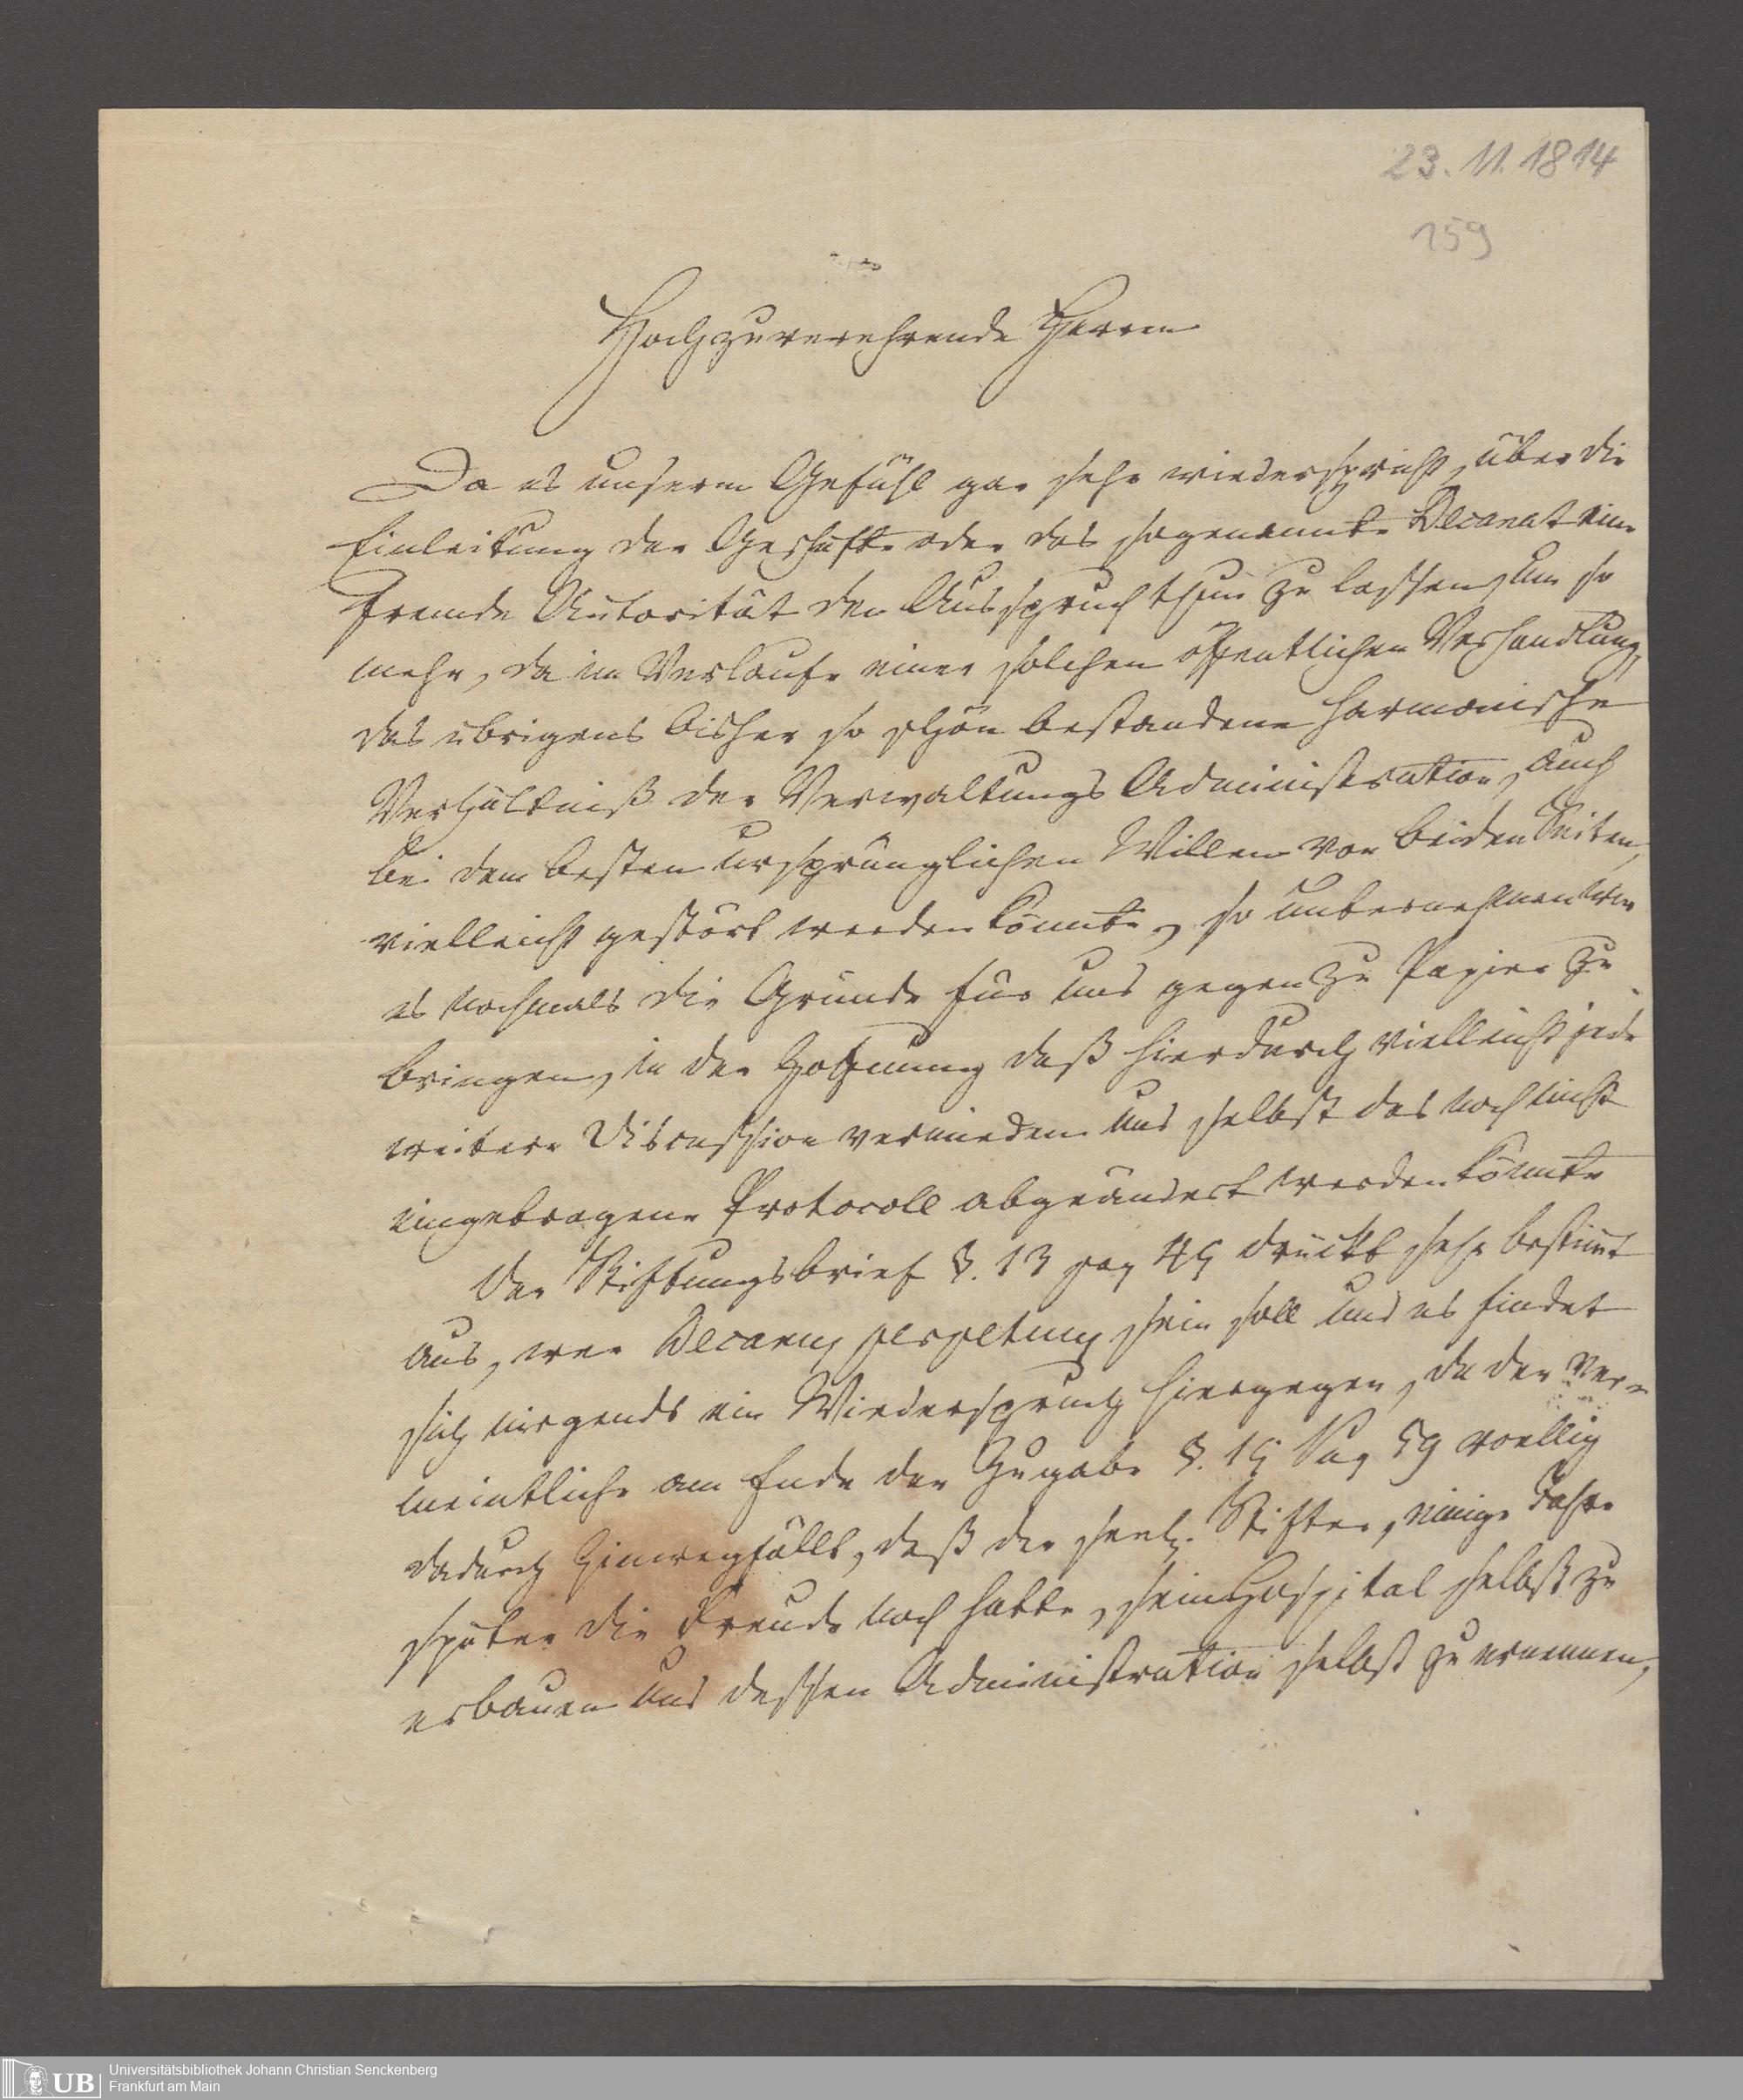 23.11.1814
159
Hochzuverehrende Herren
Da es unserm Gefühl gar sehr wiederspricht, über die
Einleitung der Geschäfte oder das sogenannte Decanat eine
fremde Autorität den Ausspruch thun zu lassen, um so
mehr, da im Verlaufe einer solchen öffentlichen Verhandlung,
das übrigens bisher so schön bestandene harmonische
Verhältniß der Verwaltungs Administration, auch
bei dem besten ursprünglichen Willen von beiden Seiten,
vielleicht gestört werden könnte, so unternehmen wir
es nochmals die Gründe für und gegen zu Papier zu
bringen, in der Hofnung daß hierdurch vielleicht jede
weitere Discussion vermieden und selbst das noch nicht
eingetragene Protocoll abgeändert werden könnte
Der Stiftungsbrief §. 13 pag 45 drückt sehr bestimt
aus, wer Decanus perpetuus sein soll und es findet
sich nirgends ein Wiederspruch hiergegen, da der ver-
meintliche am Ende der Zugabe §. 15 Pag 59 voellig
dadurch hinwegfällt, daß der seel. Stifter, einige Jahre
später die Freude noch hatte, sein Hospital selbst zu
erbauen und dessen Administration selbst zu ernennen,
UB
Universitätsbibliothek Johann Christian Senckenberg
Frankfurt am Main